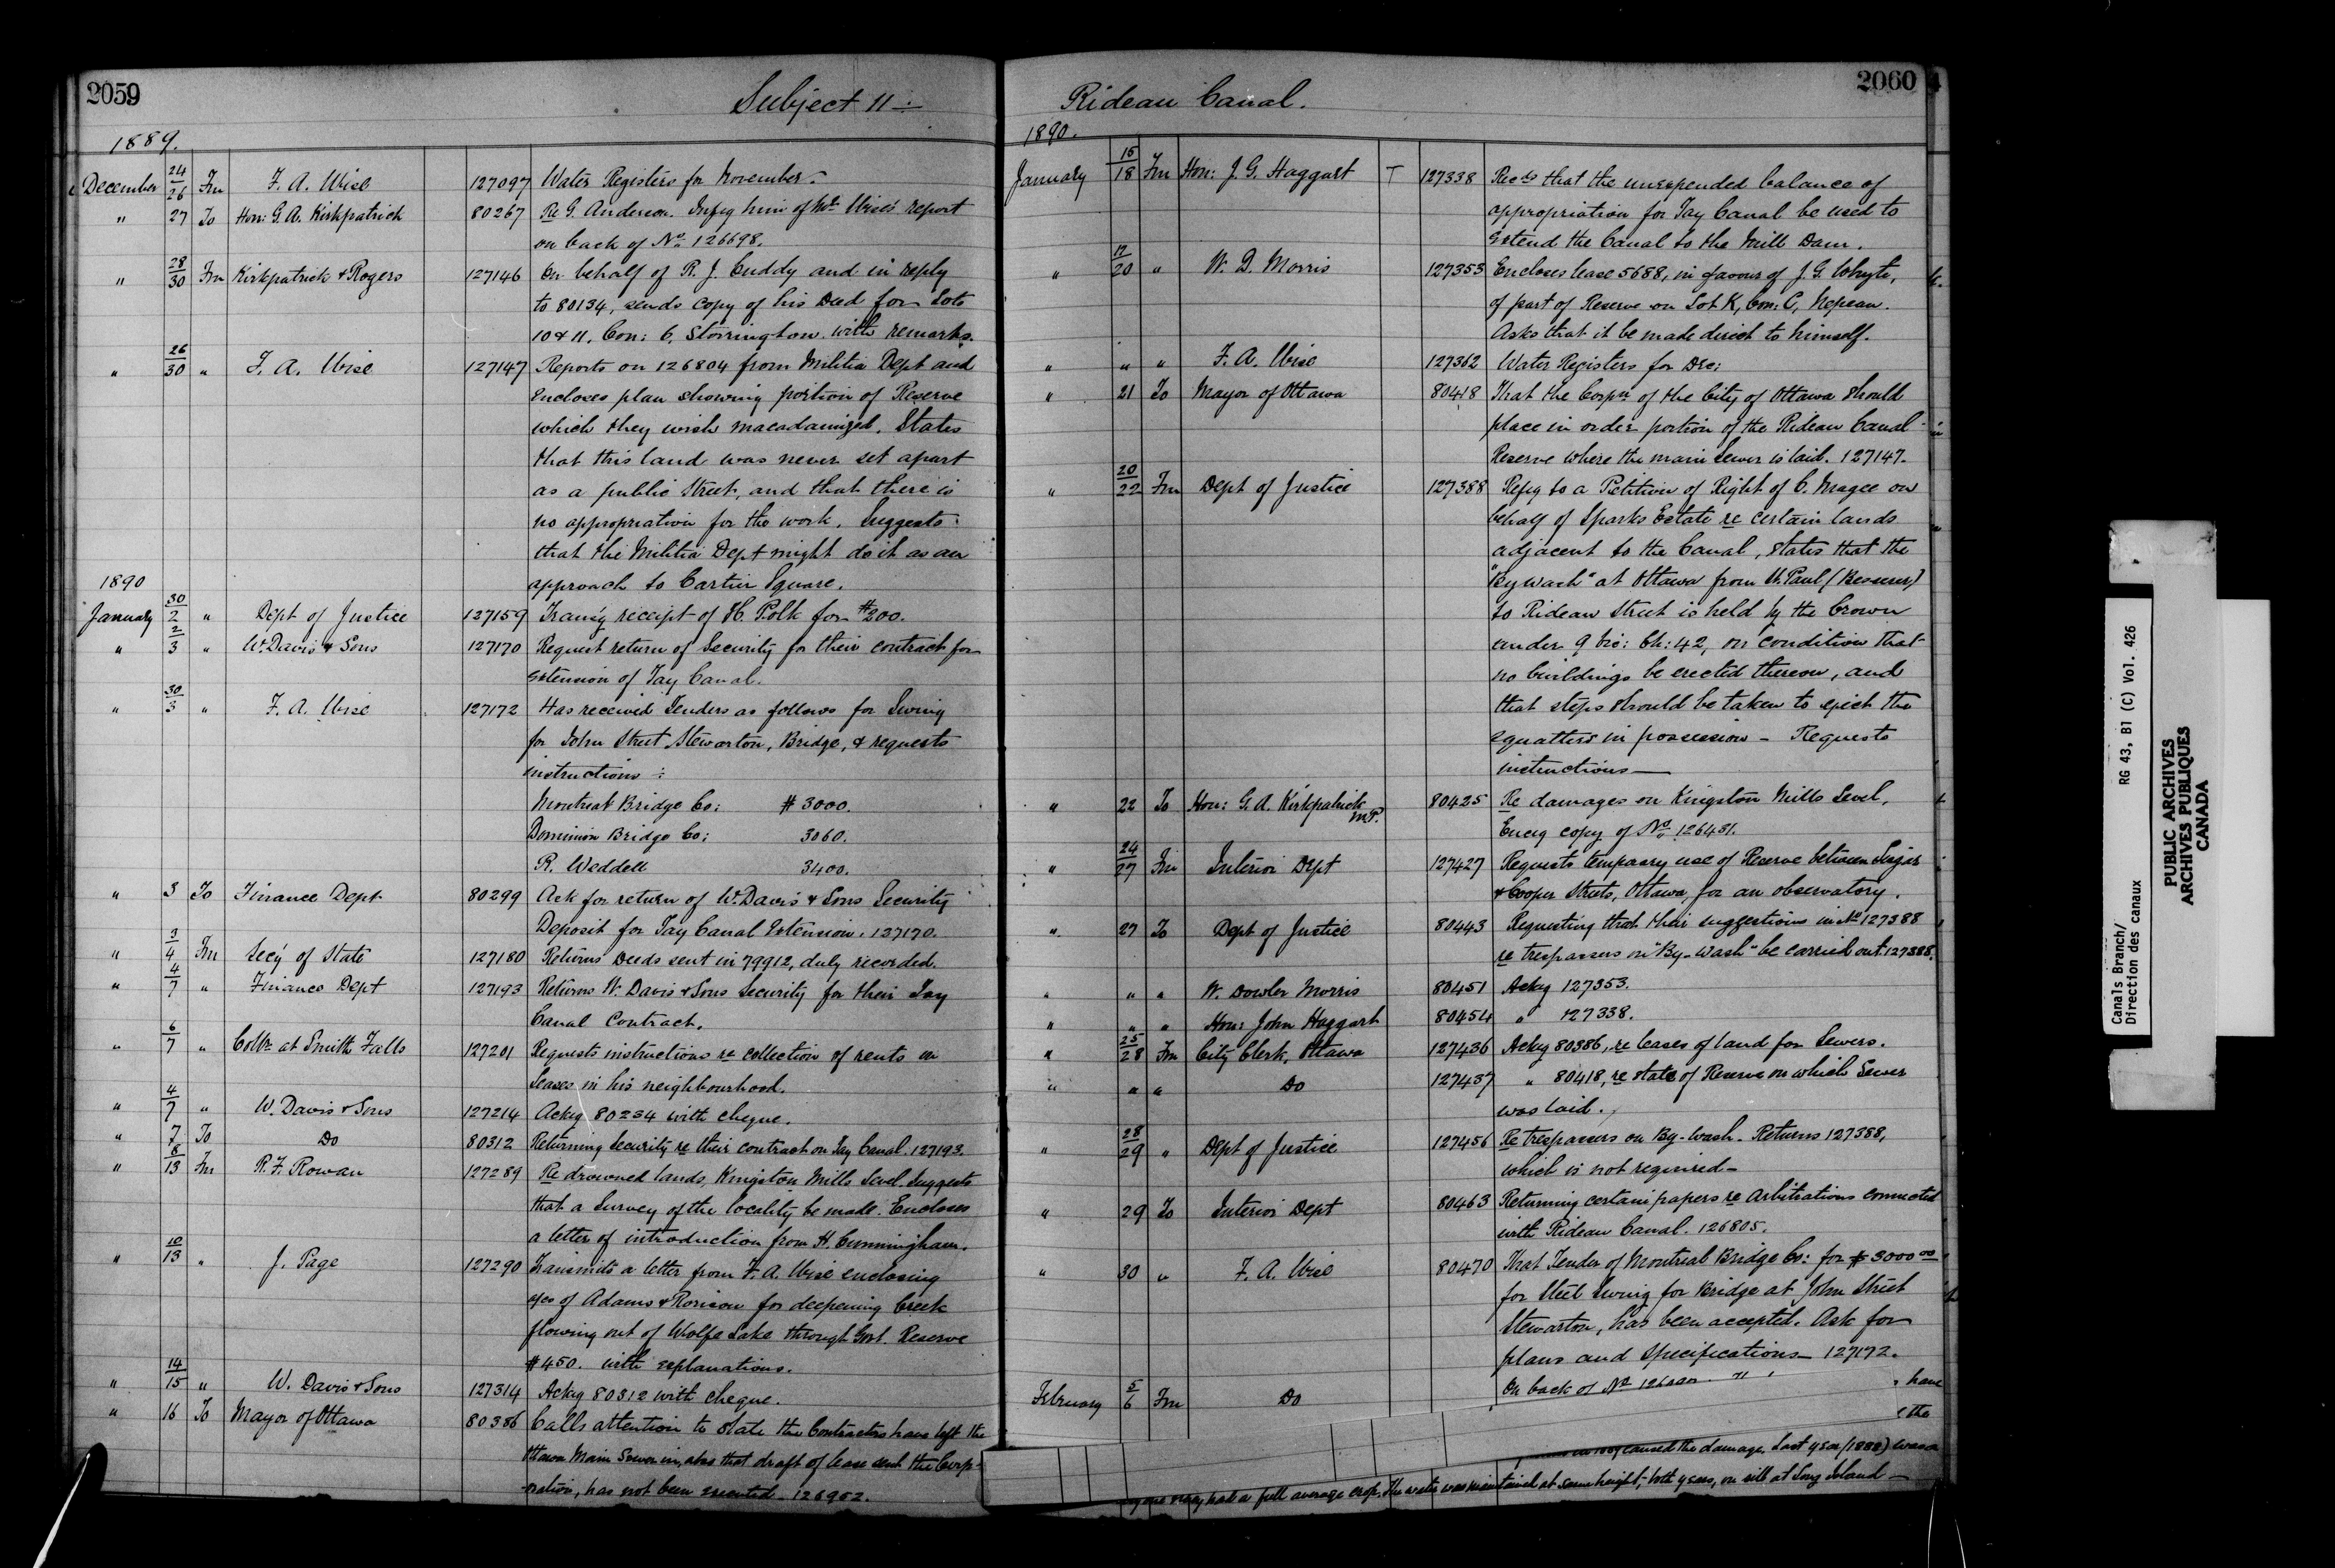 2059
Subject 11 :
1889.
December 24/26 Fm F. A. Wise 127097 Water Registers for November.
" 27 To Hon: G. A. Kirkpatrick 80267 Re G. Anderson. Infg him of Mr Wise's report
on back of No. 126698.
" 28/30 Fm Kirkpatrick & Rogers 127146 On behalf of R. J. Cuddy and in reply
to 80134, sends copy of his Deed for Lots
10 & 11, Con: 6, Storrington with remarks.
" 26/30 " F. A. Wise 127147 Reports on 126804 from Militia Dept and
Encloses plan showing portion of Reserve
which they wish macadamized. States
that this land was never set apart
as a public Street, and that there is
no appropriation for the work. Suggests
that the Militia Dept might do it as an
approach to Cartier Square.
1890
January 30/2 " Dept of Justice 127159 Trans'g receipt of H. Polk for $200.
" 2/3 " Wm Davis & Sons 127170 Request return of Security for their contract for
extension of Tay Canal.
" 30/3 " F. A. Wise 127172 Has received Tenders as follows for Swing
for John Street Stewarton, Bridge, & requests
instructions :
Montreal Bridge Co: $3000.
Dominion Bridge Co: 3060.
R. Weddell 3400.
" 3 To Finance Dept 80299 Ask for return of Wm Davis & Sons Security
Deposit for Tay Canal Extension. 127170.
" 3/4 Fm Sec'y of State 127180 Returns Deeds sent in 79912, duly recorded.
" 4/7 " Finance Dept 127193 Returns W. Davis & Sons Security for their Tay
Canal Contract.
" 6/7 " Collr at Smith Falls 127201 Requests instructions re collection of rents on
Leases in his neighbourhood.
" 4/7 " W. Davis & Sons 127214 Ackg 80234 with cheque.
" 7 To Do 80312 Returning Security re their contract on Tay Canal. 127193.
" 8/13 Fm R. F. Rowan 127289 Re drowned lands, Kingston Mills Level. Suggests
that a Survey of the locality be made. Encloses
a letter of introduction from H. Cunningham.
" 10/13 " J. Page 127290 Transmits a letter from F. A. Wise enclosing
a/cs of Adams & Rorison for deepening Creek
flowing out of Wolfe Lake through Govt. Reserve
$450. with explanations.
" 14/15 " W. Davis & Sons 127314 Ackg 80312 with cheque.
" 16 To Mayor of Ottawa 80386 Calls attention to state the Contractors have left the
Ottawa Main Sewer in, also that draft of lease sent the Corp-
oration, has not been executed. 126902.
2060
Rideau Canal.
1890.
January 16/18 Fm Hon: J. G. Haggart T 127338 Recds that the unexpended balance of
appropriation for Tay Canal be used to
extend the Canal to the Mill Dam.
" 17/20 " W. D. Morris 127353 Encloses lease 5688, in favour of J. G. Whyte,
of part of Reserve on Lot K, Con: C, Nepean.
Asks that it be made direct to himself.
" " " F. A. Wise 127362 Water Registers for Dec:
" 21 To Mayor of Ottawa 80418 That the Corpn of the City of Ottawa should
place in order portion of the Rideau Canal
Reserve where the main Sewer is laid. 127147.
" 20/22 Fm Dept of Justice 127388 Refg to a Petition of Right of C. Magee on
behalf of Sparks Estate re certain lands
adjacent to the Canal, states that the
"By wash" at Ottawa from St. Paul (Besserer)
to Rideau Street is held by the Crown
under 9 Vic: Ch: 42, on condition that
no buildings be erected thereon, and
that steps should be taken to eject the
squatters in possession - Requests
instructions—
" 22 To Hon: G. A. Kirkpatrick M.P. 80425 Re damages on Kingston Mills Level,
Encg copy of No. 126431.
" 24/27 Fm Interior Dept 127427 Requests tempoary use of Reserve between Lisgar
& Cooper Streets, Ottawa, for an observatory.
" 27 To Dept of Justice 80443 Requesting that their suggestions in No 127388
re trespassers on "By-wash" be carried out. 127388.
" " " W. Dowler Morris 80451 Ackg 127353.
" " " Hon: John Haggart 80454 " 127338.
" 25/28 Fm City Clerk, Ottawa 127436 Ackg 80386, re leases of land for Sewers.
" " " Do 127437 " 80418, re state of Reserve on which Sewer
was laid.
" 28/29 " Dept of Justice 127456 Re trespassers on By-wash. Returns 127388,
which is not required—
" 29 To Interior Dept 80463 Returning certain papers re Arbitrations connected
with Rideau Canal. 126805.
" 30 " F. A. Wise 80470 That Tender of Montreal Bridge Co: for $3000 00
for Steel Swing for Bridge at John Street
Stewarton, has been accepted. Ask for
plans and Specifications— 127172.
February 5/6 Fm Do On back of No
have
the
caused the damage. Last year (1888) was a
full average crop. The water was maintained at same height, both years, on sill at Long Island—
Canals Branch/
Direction des canaux
RG 43, B1 (C) Vol. 426
PUBLIC ARCHIVES
ARCHIVES PUBLIQUES
CANADA